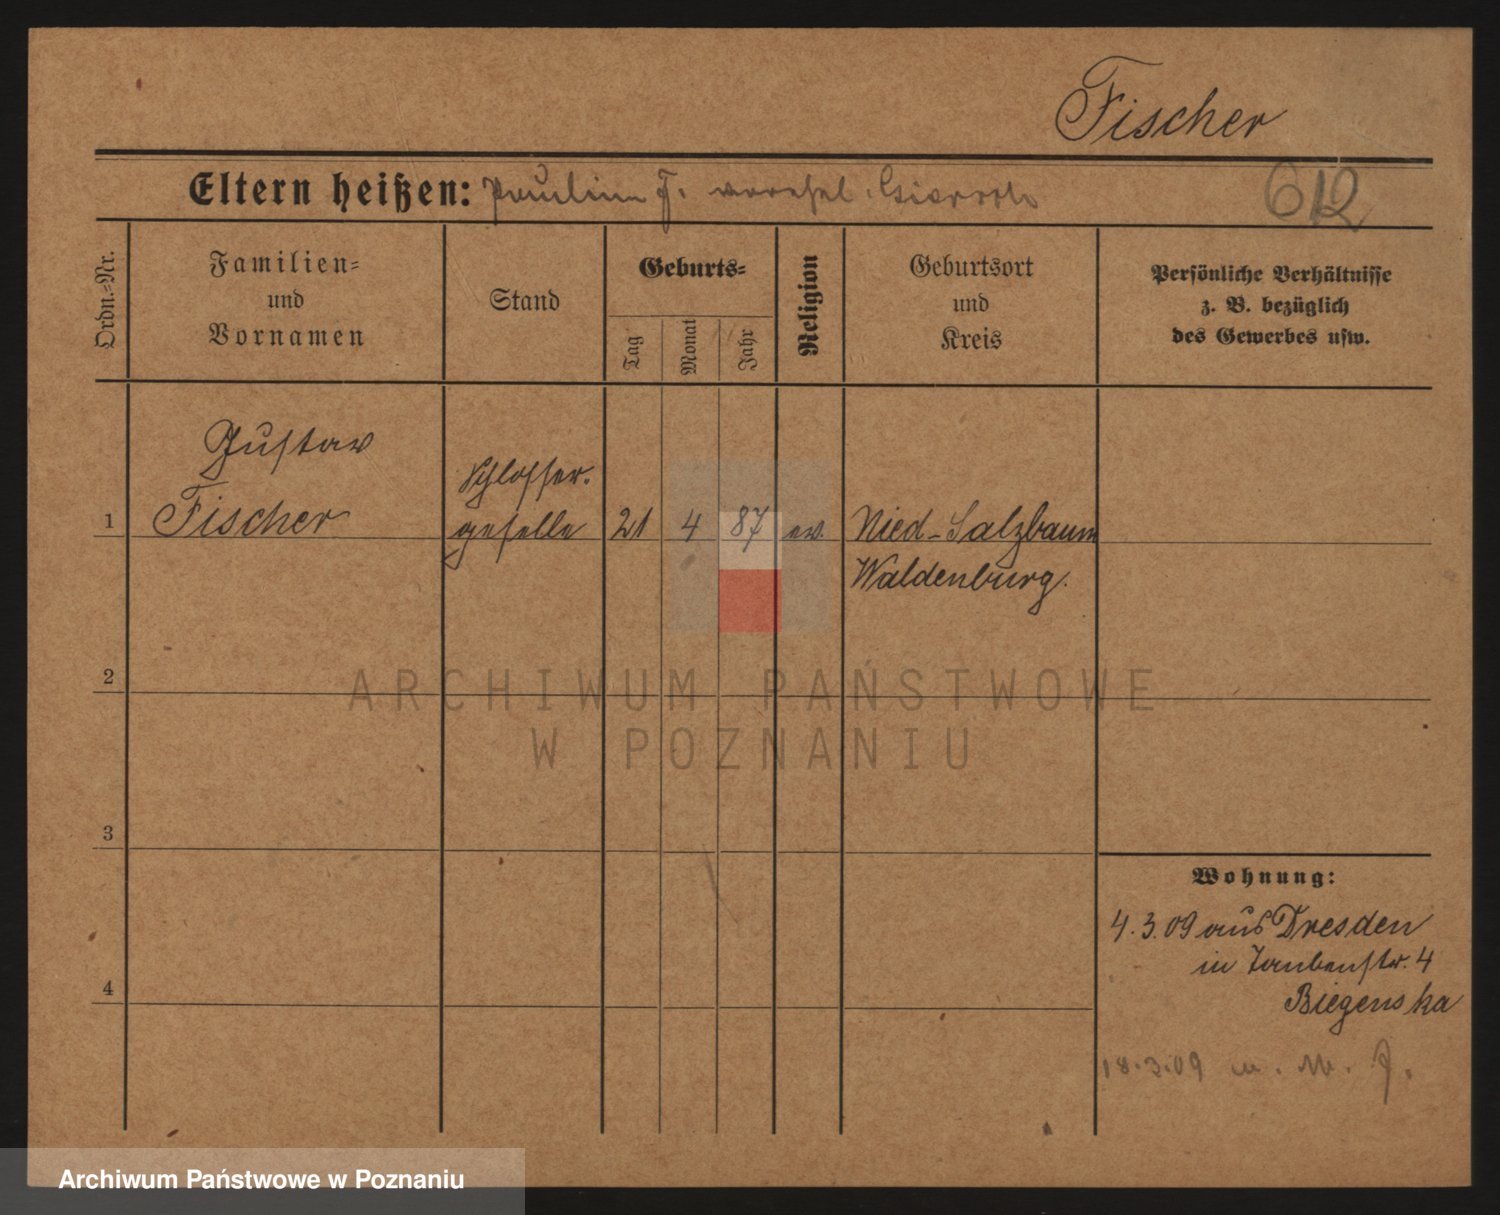 Fischer
Eltern heißen: Paulin F. verehel.
612
Ordn.-Nr.
Familien-
und
Vornamen
Stand
Geburts-
Tag
Monat
Jahr
Religion
Geburtsort
und
Kreis
Persönliche Verhältnisse
z. B. bezüglich
des Gewerbes usw.
Gustav
Fischer
Schlosser-
geselle
1
21
4
87
ev.
Nied-Salzbaum
Waldenburg.
2
ARCHIWUM PAŃSTWOWE
W POZNANIU
3
Wohnung:
4.3.09 aus Dresden
in Taubenstr. 4
Biegenska
4
18.3.09
Archiwum Państwowe w Poznaniu